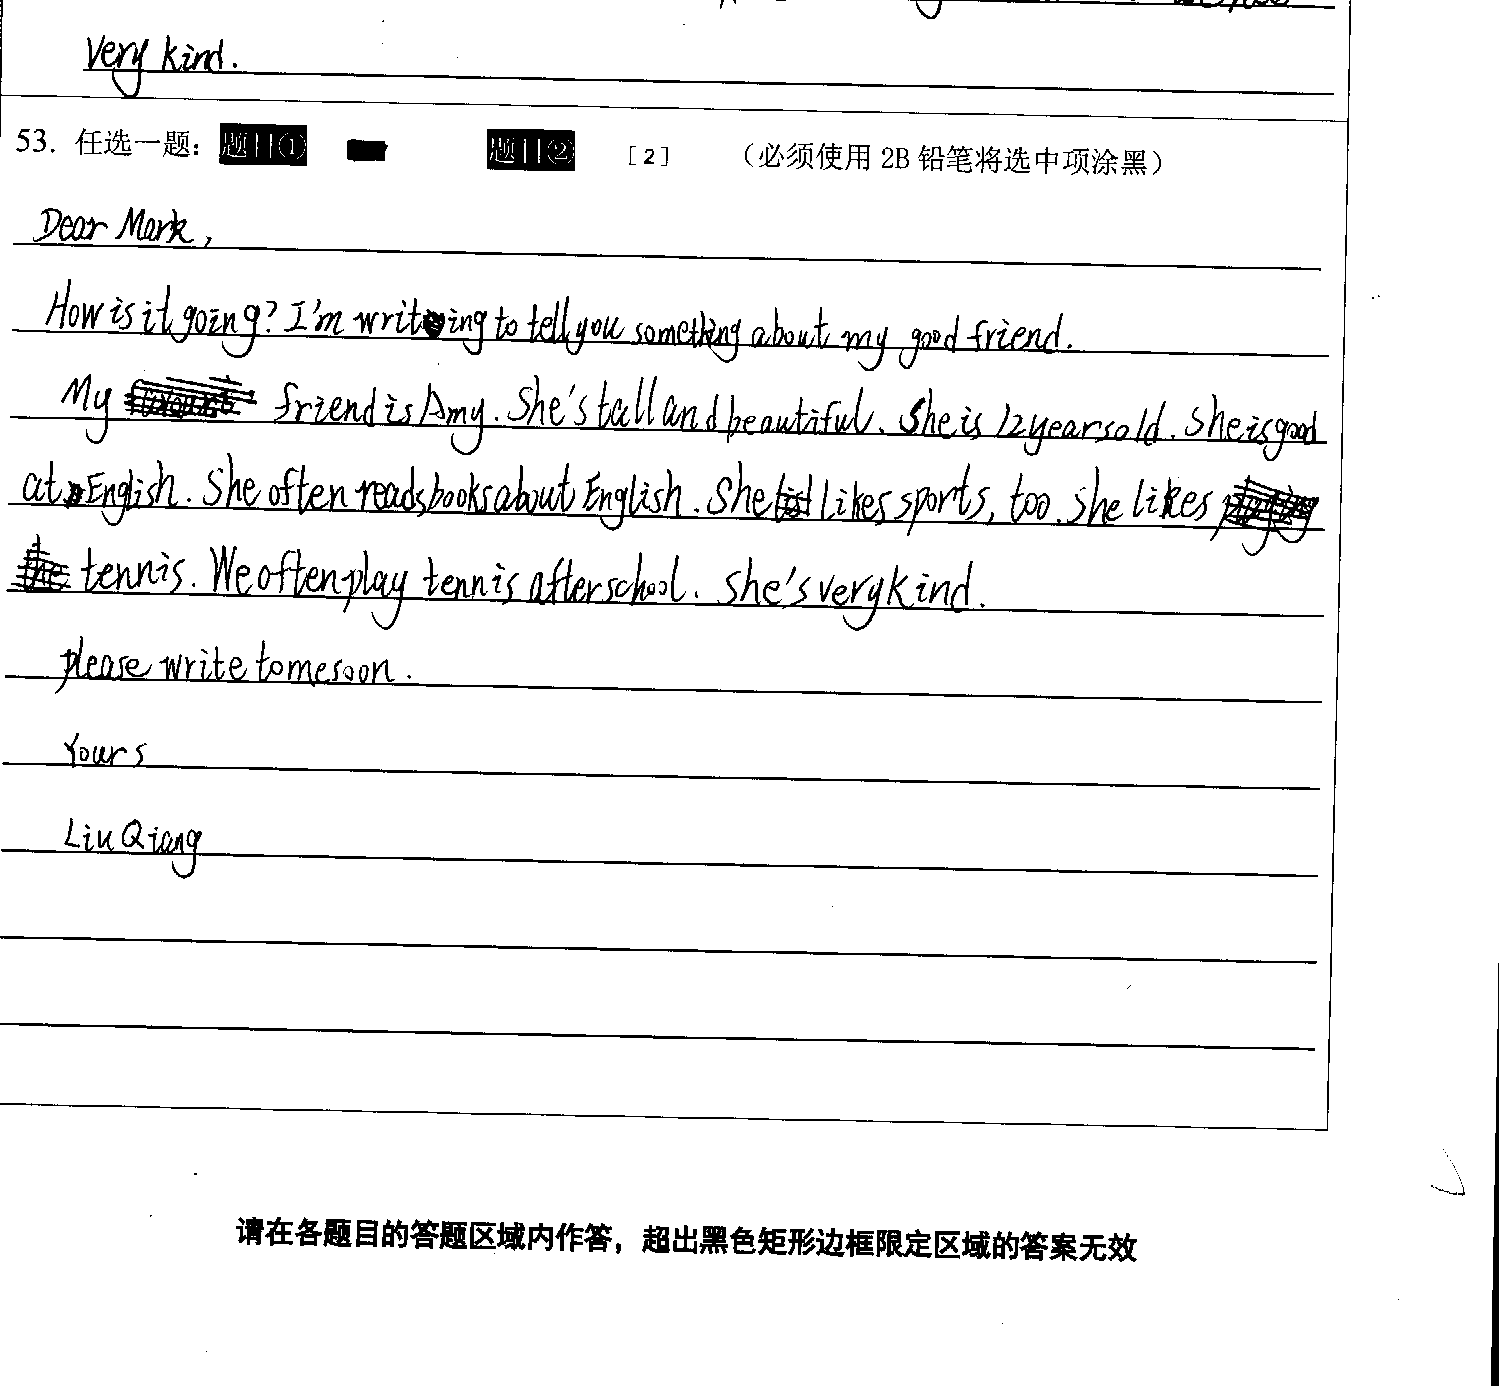 very kind.
53. 任选一题： 题目① 题目② [2] （必须使用 2B 铅笔将选中项涂黑）
Dear Mark,
How is it going? I'm writing to tell you something about my good friend.
My friend is Amy. She's tall and beautiful. She is 12 years old. She is good
at English. She often reads books about English. She likes sports, too. She likes
tennis. We often play tennis after school. She's very kind.
please write to me soon.
Yours
Liu Qiang
请在各题目的答题区域内作答，超出黑色矩形边框限定区域的答案无效